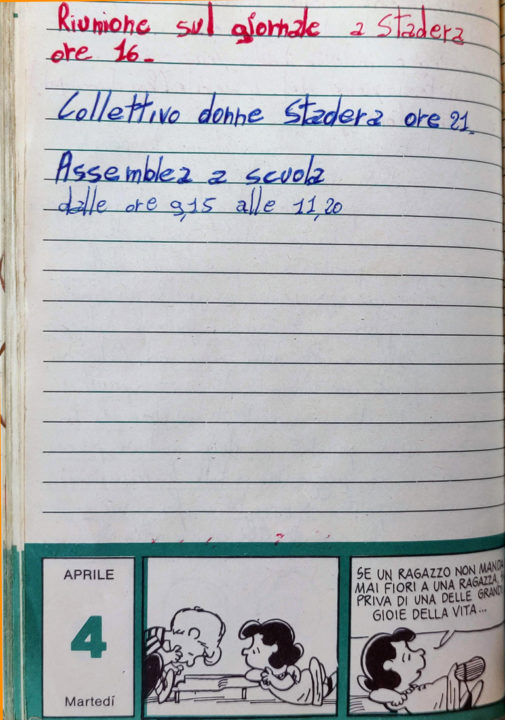 Riunione sul giornale a Stadera
ore 16.
Collettivo donne Stadera ore 21.
Assemblea a scuola
dalle ore 9,15 alle 11,20
APRILE
4
Martedí
SE UN RAGAZZO NON MANDA
MAI FIORI A UNA RAGAZZA,
PRIVA DI UNA DELLE GRANDI
GIOIE DELLA VITA...